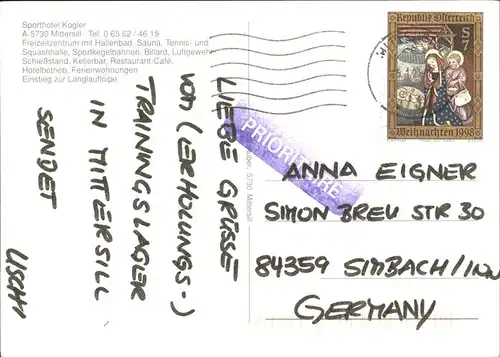 Sporthotel Kogler
A-5730 Mittersill Tel. 0 65 62 / 46 15
Freizeitzentrum mit Hallenbad, Sauna, Tennis- und
Squashhalle, Sportkegelbahnen, Billard, Luftgewehr-
Schießstand, Kellerbar, Restaurant-Café,
Hotelbetrieb, Ferienwohnungen
Einstieg zur Langlaufloipe
Republik Österreich
S 7
Weihnachten 1998
PRIORITAIRE
5730 Mittersill
LIEBE GRÜSSE
VOM (ERHOLUNGS-)
TRAININGSLAGER
IN MITTERSILL
SENDET
USCHI
ANNA EIGNER
SIMON BREU STR 30
84359 SIMBACH/INN
GERMANY